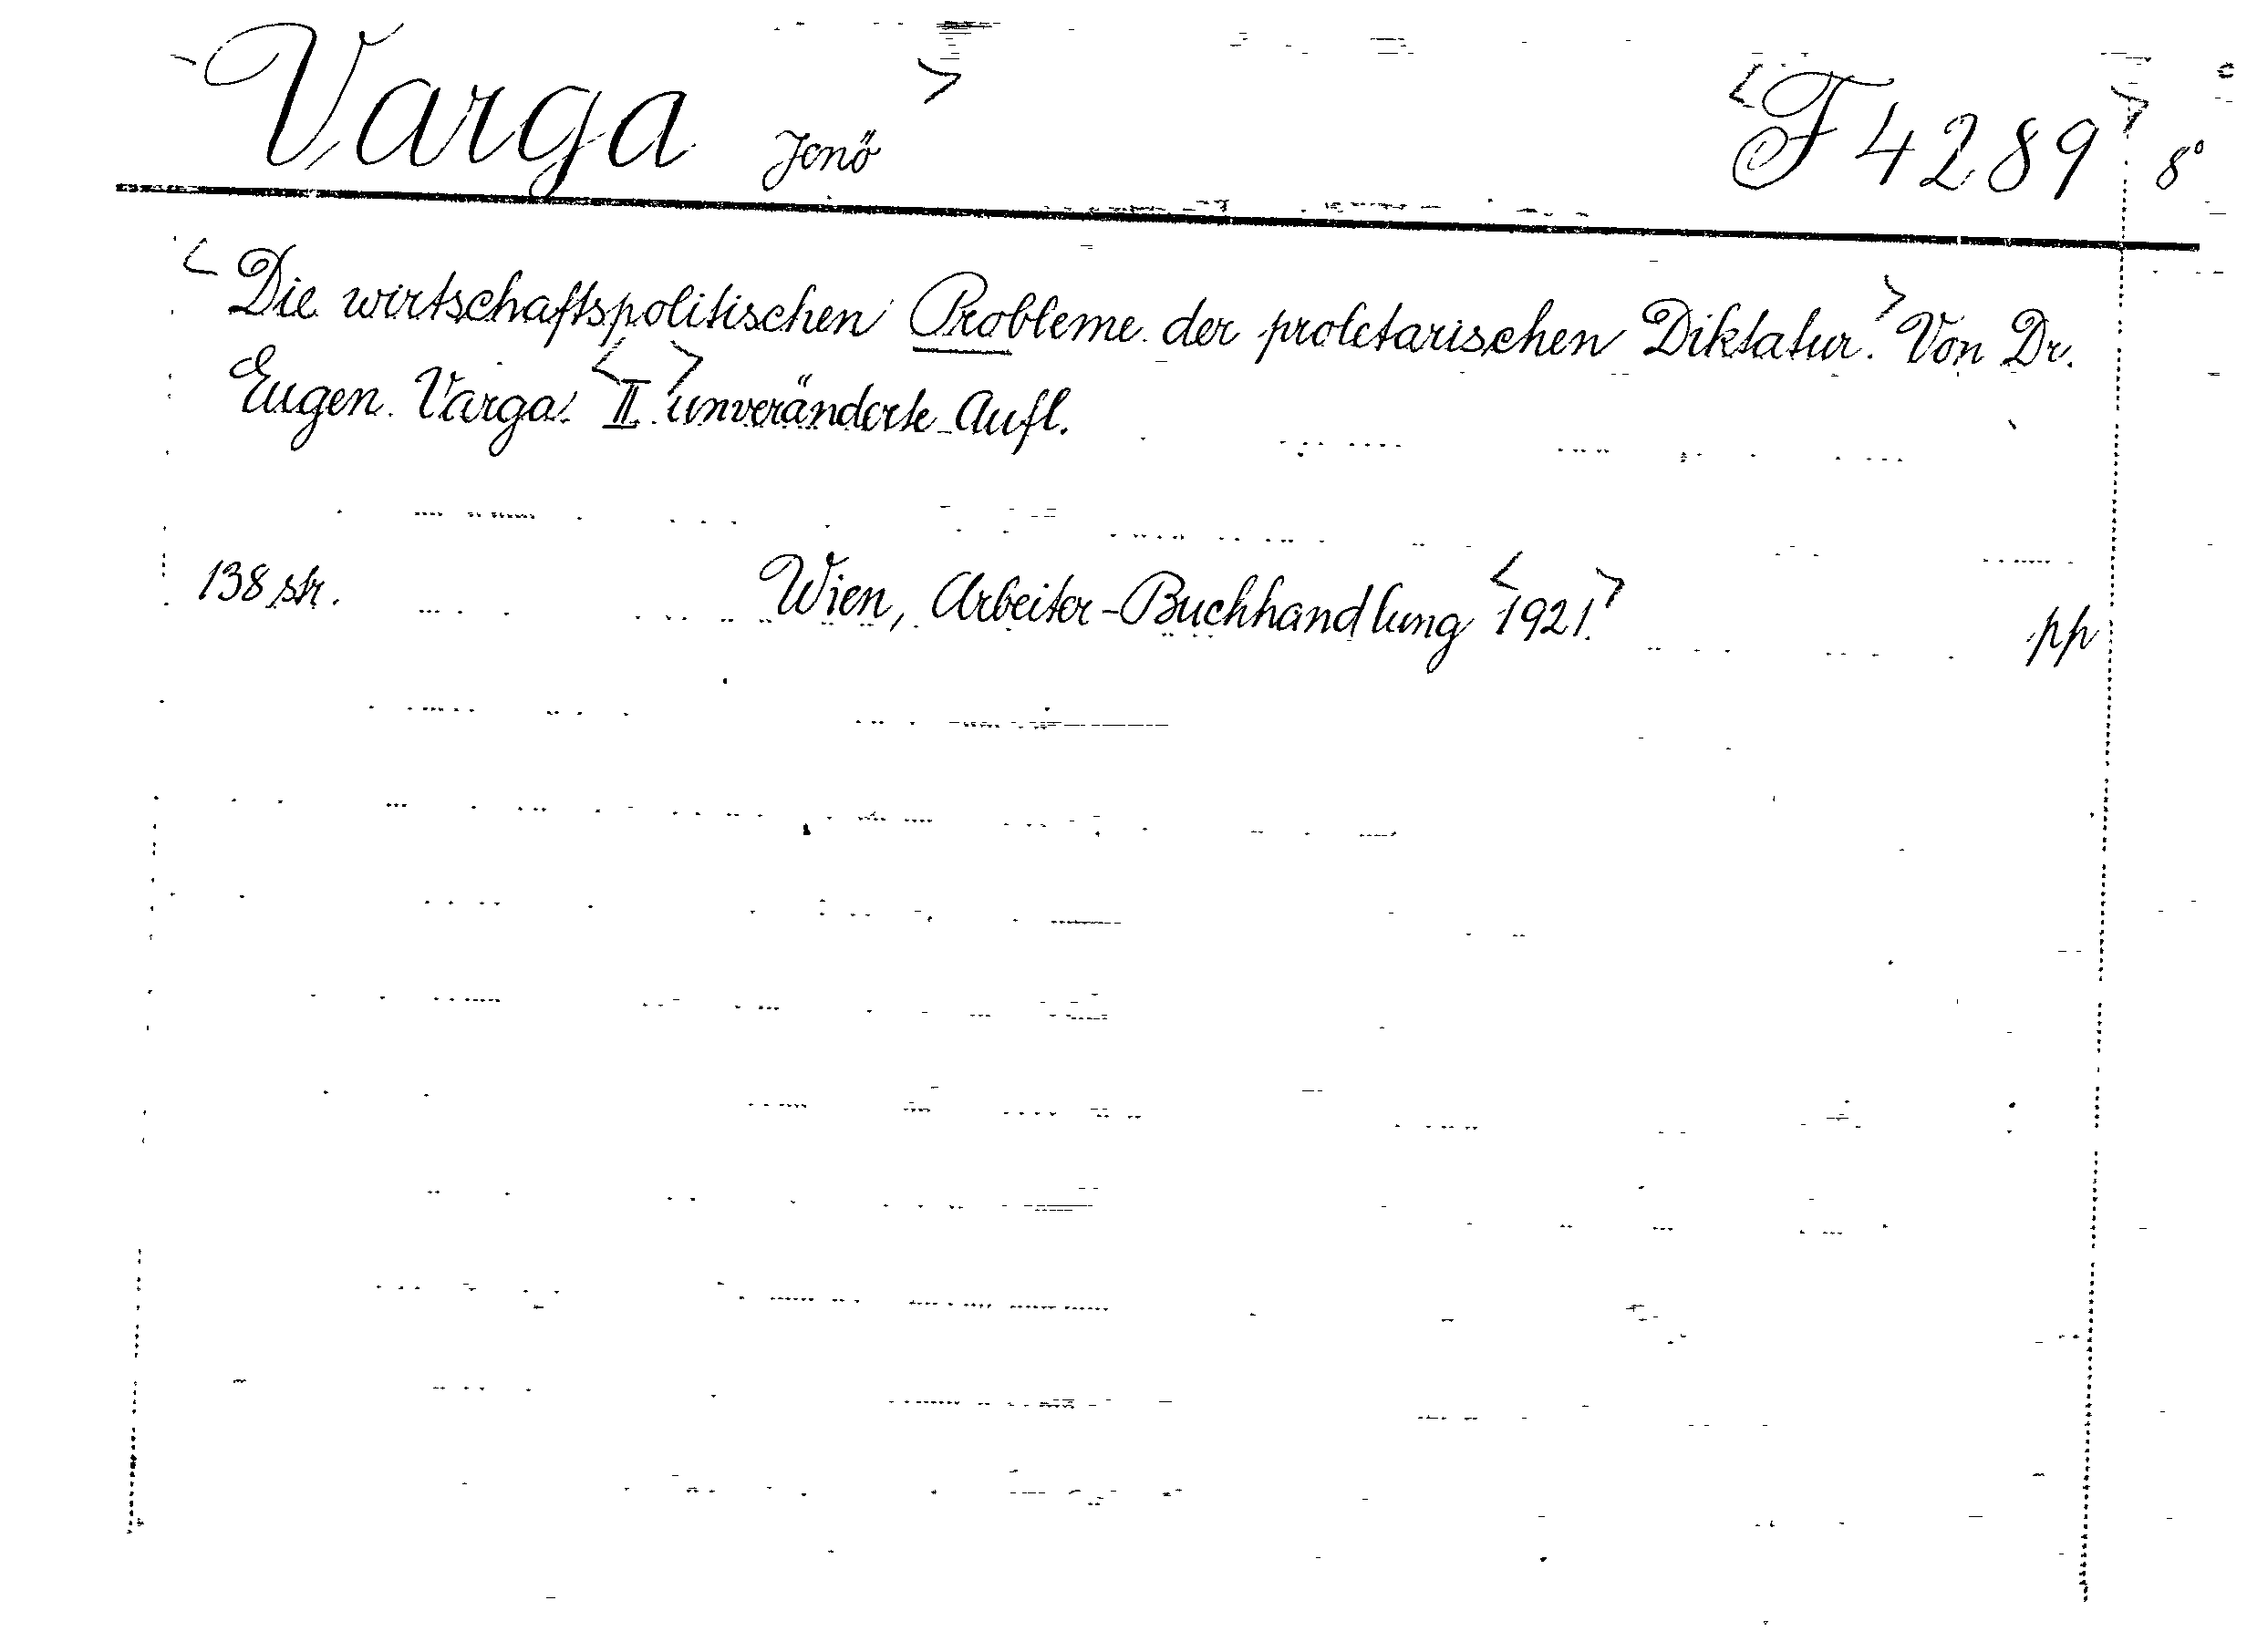 Varga Jenő <F 4289> 8°
<Die wirtschaftspolitischen Probleme der proletarischen Diktatur.> Von Dr.
Eugen Varga. <II.> unveränderte Aufl.
138 str. Wien, Arbeiter-Buchhandlung <1921.> pp